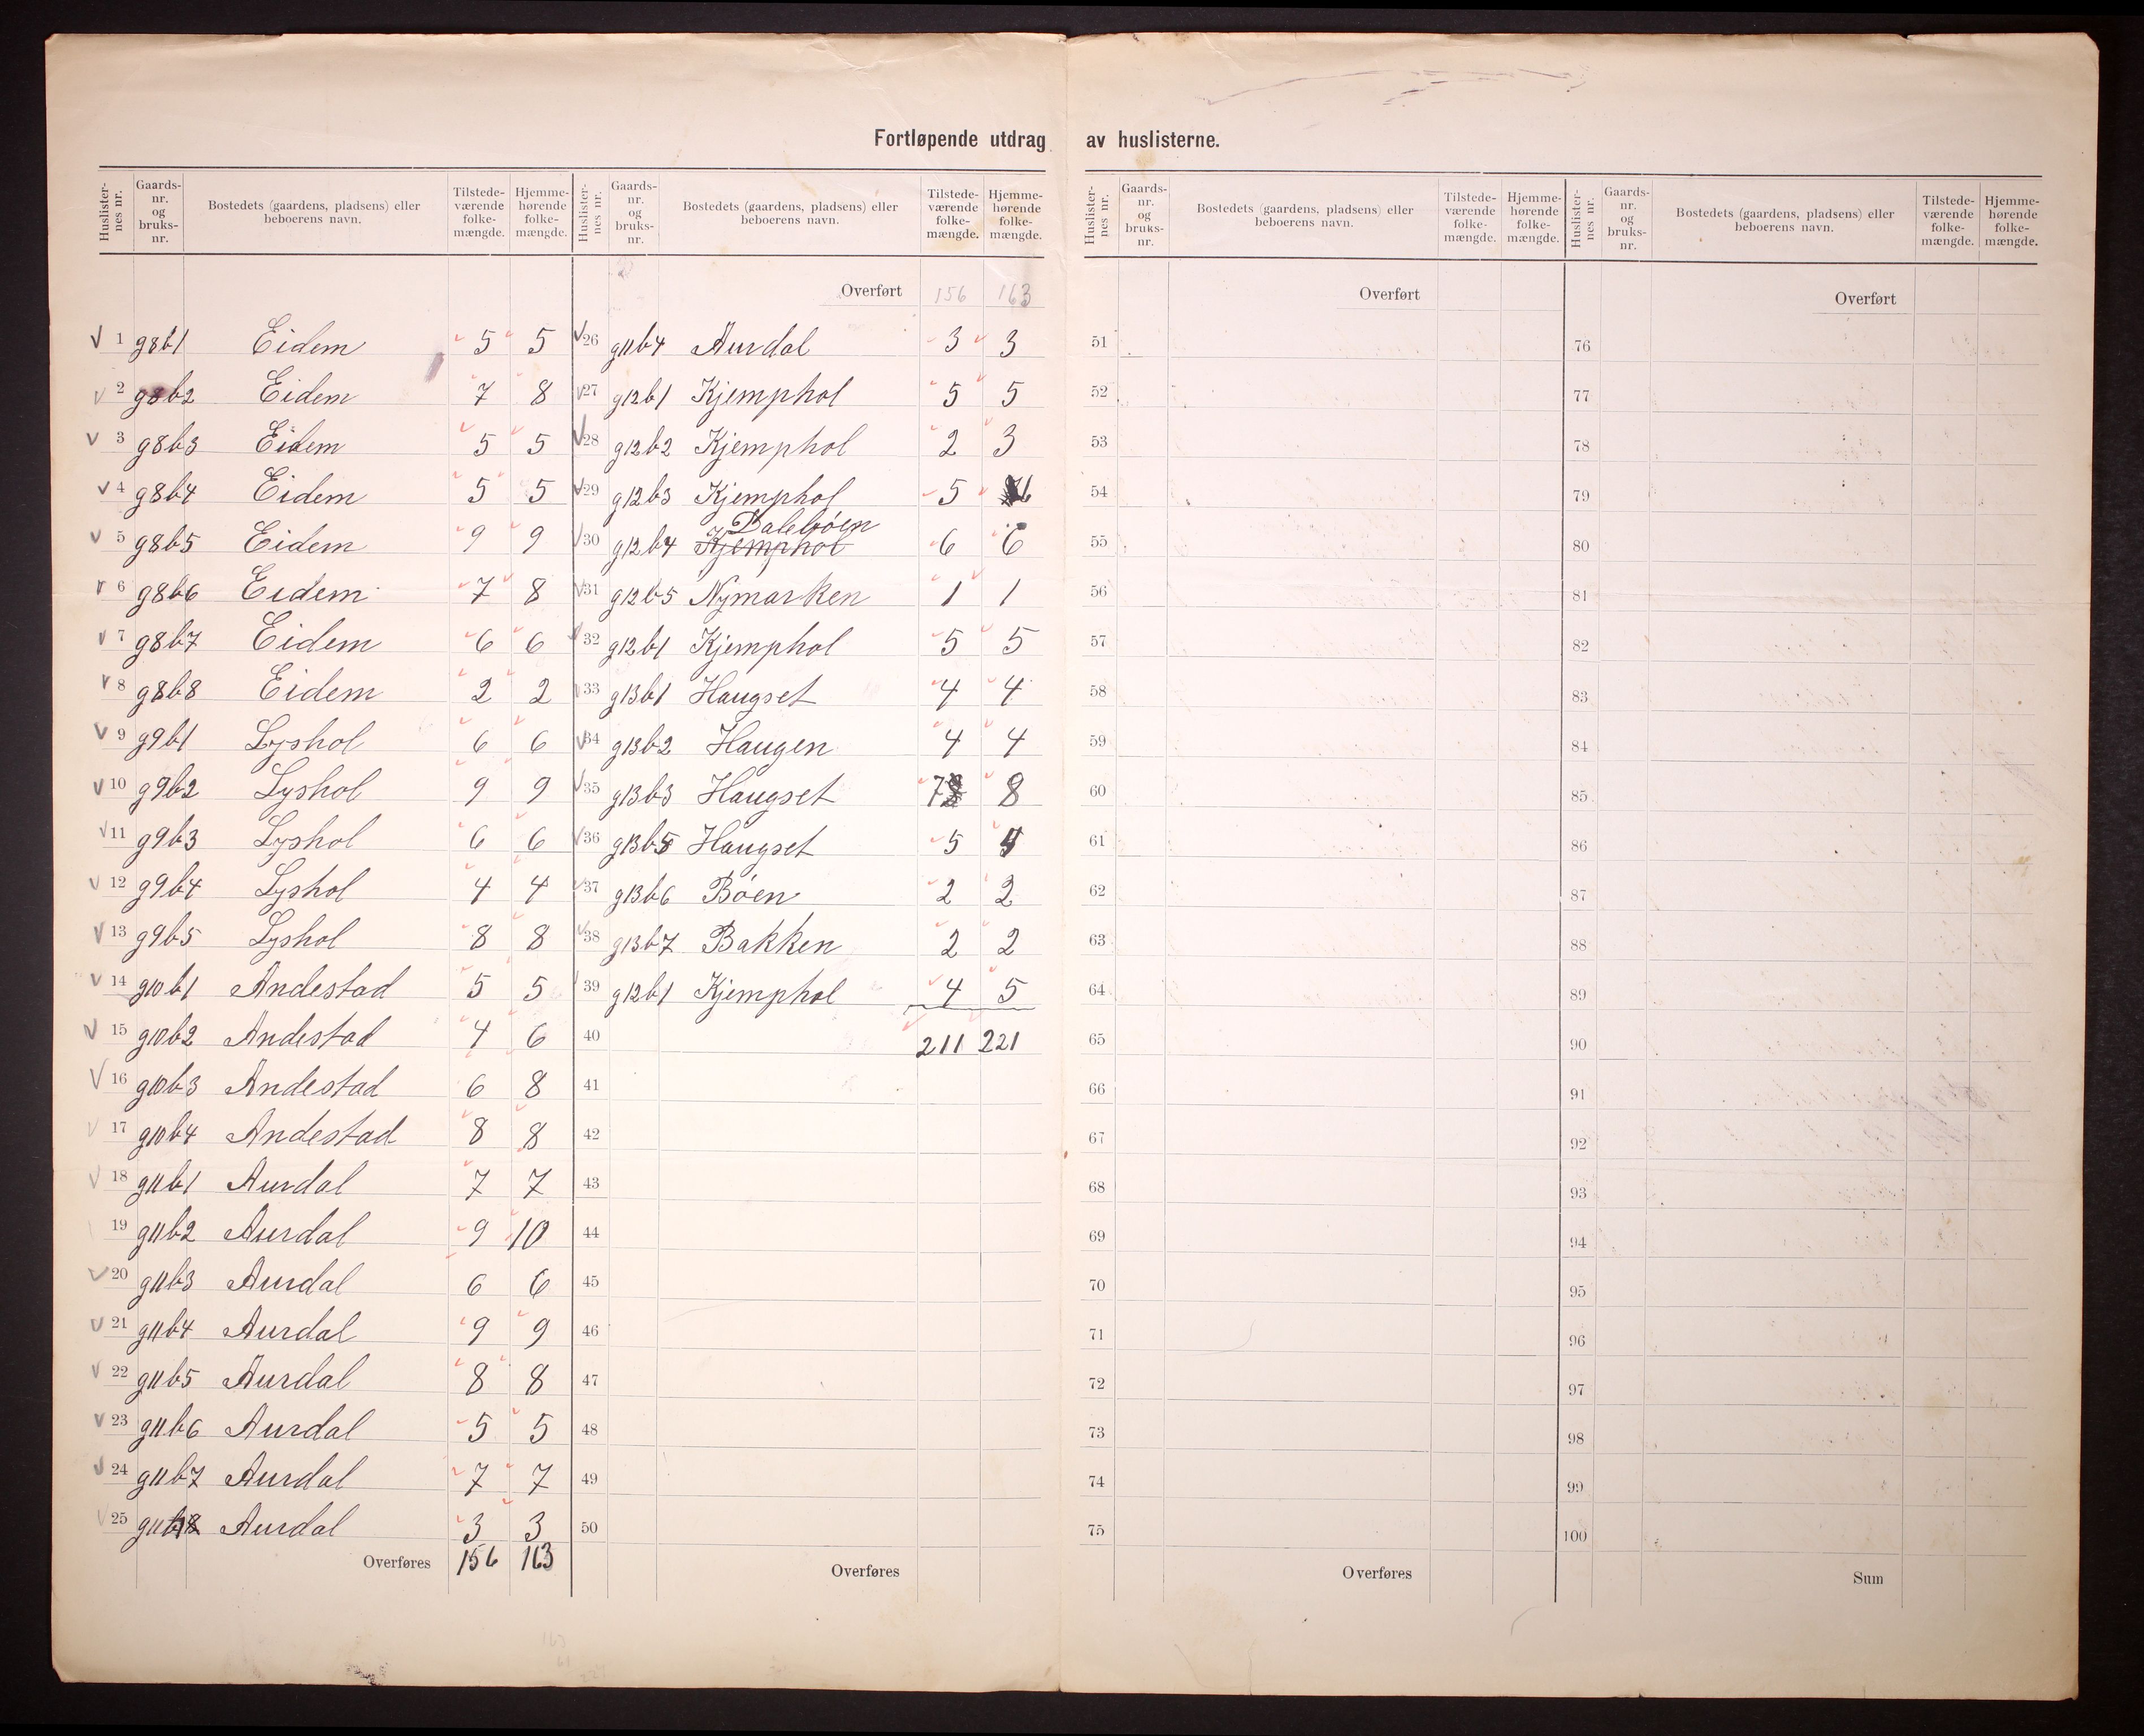 Fortløpende utdrag av huslisterne.
Huslister-nes nr. Gaards-nr. og bruks-nr. Bostedets (gaardens, pladsens) eller beboerens navn. Tilstede-værende folke-mængde. Hjemme-hørende folke-mængde.
Huslister-nes nr. Gaards-nr. og bruks-nr. Bostedets (gaardens, pladsens) eller beboerens navn. Tilstede-værende folke-mængde. Hjemme-hørende folke-mængde.
Huslister-nes nr. Gaards-nr. og bruks-nr. Bostedets (gaardens, pladsens) eller beboerens navn. Tilstede-værende folke-mængde. Hjemme-hørende folke-mængde.
Huslister-nes nr. Gaards-nr. og bruks-nr. Bostedets (gaardens, pladsens) eller beboerens navn. Tilstede-værende folke-mængde. Hjemme-hørende folke-mængde.
1 g8b1 Eidem 5 5
2 g8b2 Eidem 7 8
3 g8b3 Eidem 5 5
4 g8b4 Eidem 5 5
5 g8b5 Eidem 9 9
6 g8b6 Eidem 7 8
7 g8b7 Eidem 6 6
8 g8b8 Eidem 2 2
9 g9b1 Lyshol 6 6
10 g9b2 Lyshol 9 9
11 g9b3 Lyshol 6 6
12 g9b4 Lyshol 4 4
13 g9b5 Lyshol 8 8
14 g10b1 Andestad 5 5
15 g10b2 Andestad 4 6
16 g10b3 Andestad 6 8
17 g10b4 Andestad 8 8
18 g11b1 Aurdal 7 7
19 g11b2 Aurdal 9 10
20 g11b3 Aurdal 6 6
21 g11b4 Aurdal 9 9
22 g11b5 Aurdal 8 8
23 g11b6 Aurdal 5 5
24 g11b7 Aurdal 7 7
25 Aurdal 3 3
Overføres 156 163
Overført 156 163
26 g11b4 Aurdal 3 3
27 g12b1 Kjemphol 5 5
28 g12b2 Kjemphol 2 3
29 g12b3 Kjemphol 5 6
Dalebøen
30 g12b4 Kjemphol 6 6
31 g12b5 Nymarken 1 1
32 g12b1 Kjemphol 5 5
33 g13b1 Haugset 4 4
34 g13b2 Haugen 4 4
35 g13b3 Haugset 7 8
36 g13b5 Haugset 5 4
37 g13b6 Bøen 2 2
38 g13b7 Bakken 2 2
39 g12b1 Kjemphol 4 5
40 211 221
41
42
43
44
45
46
47
48
49
50
Overføres
Overført
51
52
53
54
55
56
57
58
59
60
61
62
63
64
65
66
67
68
69
70
71
72
73
74
75
Overføres
Overført
76
77
78
79
80
81
82
83
84
85
86
87
88
89
90
91
92
93
94
95
96
97
98
99
100
Sum
163
61
221